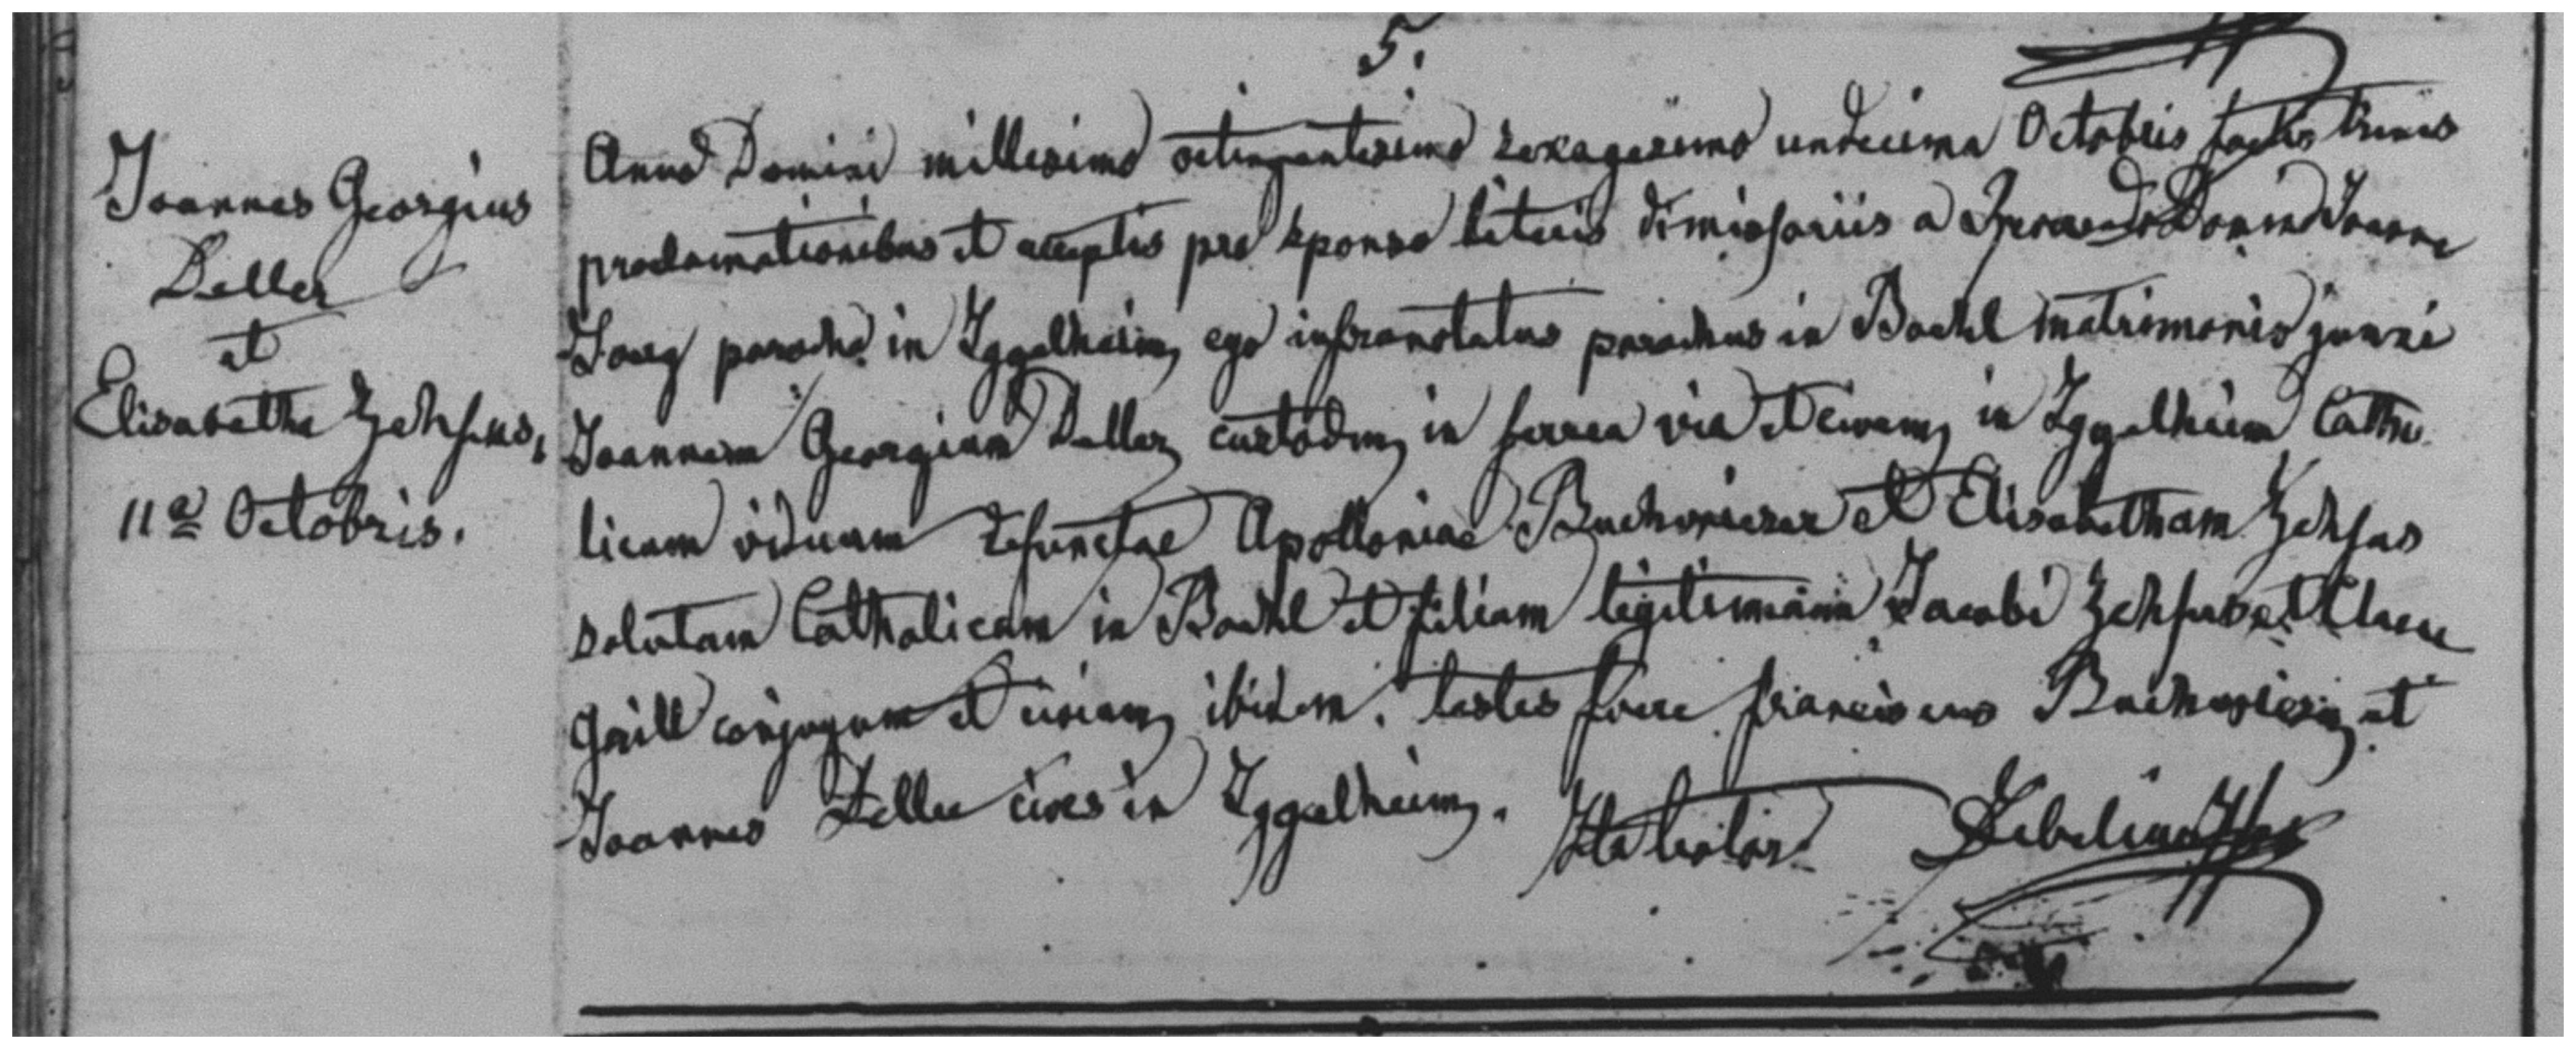 5.
Joannes Georgius
Deller
et
Elisabetha Zehfus,
11a Octobris.
Anno Domini millesimo octingentesimo sexagesimo undecima Octobris factis trinis
proclamationibus et acceptis pro sponso literis dimissoriis a Domino Joanne
Joerg parocho in Iggelheim ego infranotatus parochus in Boehl matrimonio junxi
Joannem Georgium Deller custodem in ferrea via et civem in Iggelheim Catho
licum viduum defunctae Apolloniae et Elisabetham Zehfus
solutam Catholicam in Boehl et filiam legitimam Jacobi Zehfus et Clarae
Grill conjugum et civium ibidem. testes fuere franciscus et
Joannes Deller cives in Iggelheim.